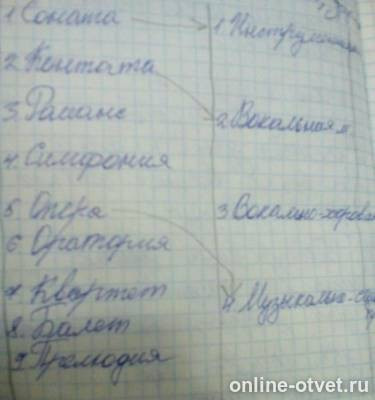 1. Соната
2. Контата
3. Романс
4. Симфония
5. Опера
6. Оратория
7. Квартет
8. Балет
9. Прелюдия
1. Инструмен
2. Вокальная м.
3 Вокально-хоровая
4 Музыкально-
online-otvet.ru